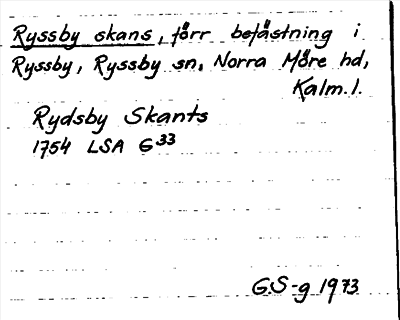 Ryssby skans, förr befästning i
Ryssby, Ryssby sn, Norra Möre hd,
Kalm. l.
Rydsby Skants
1754 LSA G33
G.S-g 1973